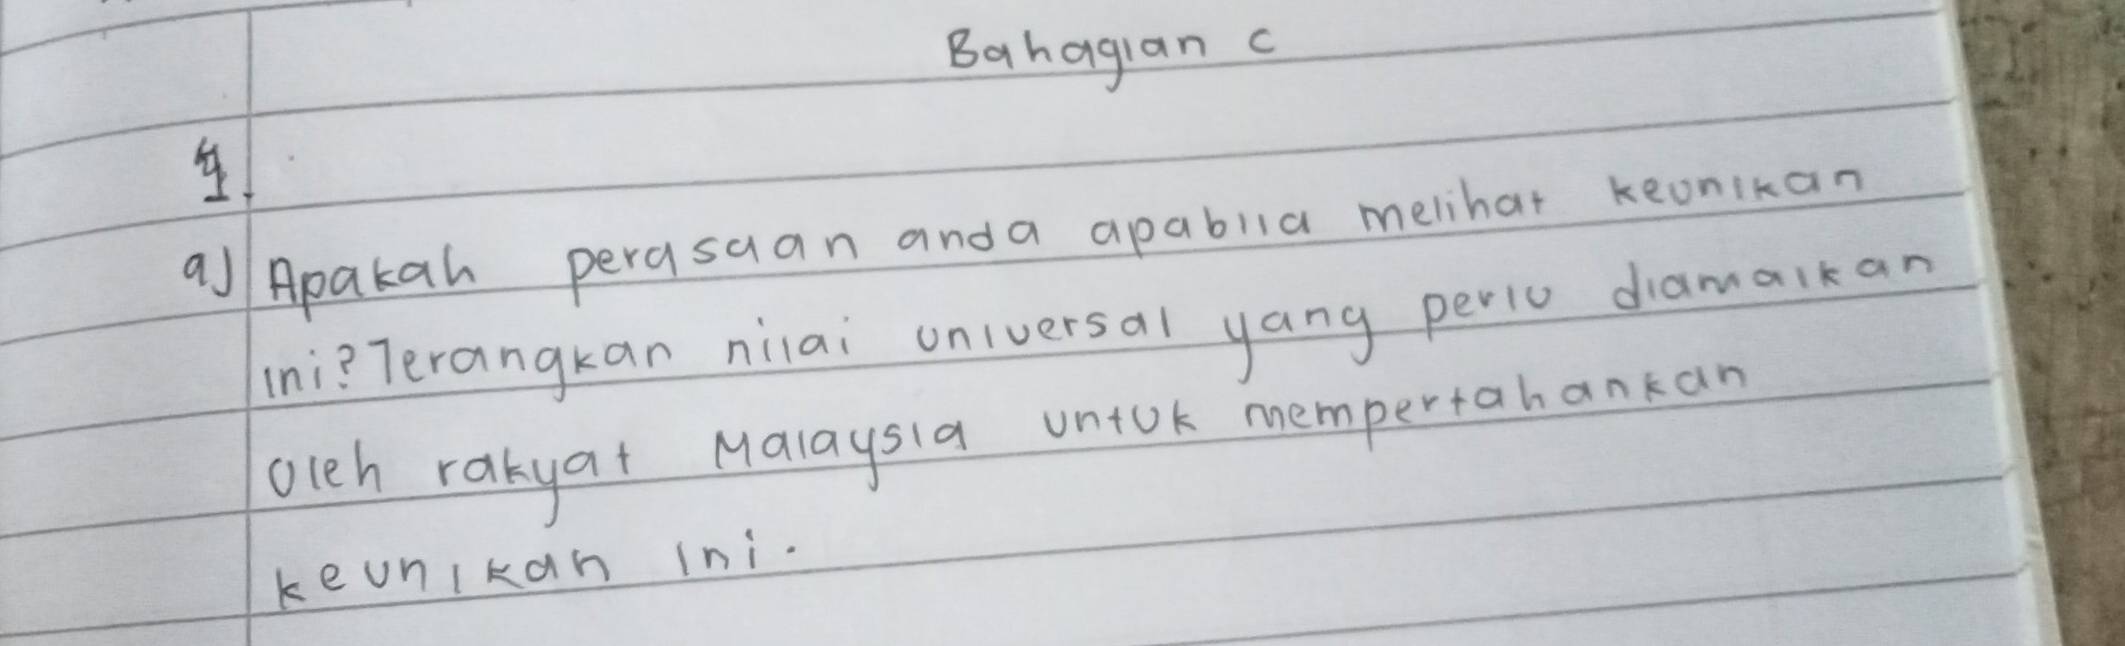 Bahagian C
4.
a) Apakah perasaan anda apabila melihat keunikan
ini? Terangkan nilai universal yang perlu diamalkan
oleh rakyat Malaysia untuk mempertahankan
keunikan ini.